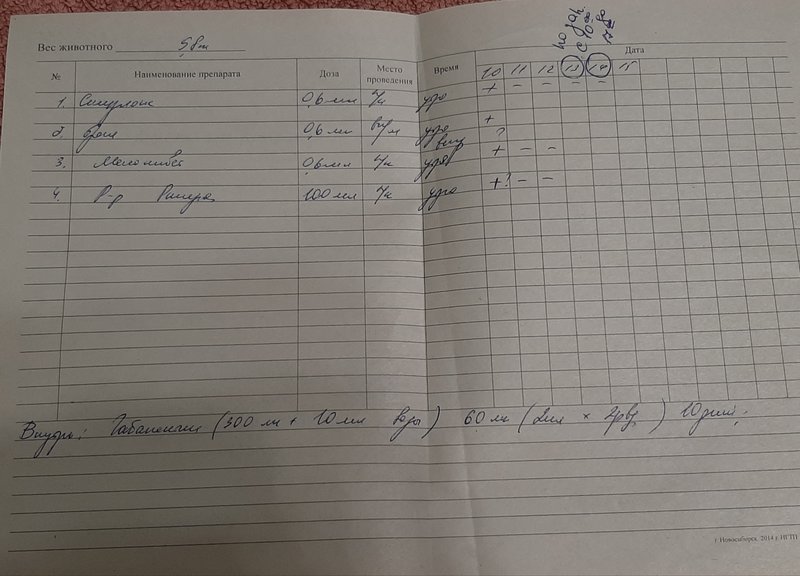 Вес животного 5,8 кг
№ Наименование препарата Доза Место проведения Время Дата
10 11 12 13 14 15
1. Синулокс 0,6 мл п/к утро + – – – –
2. 0,6 мл в/м утро +
вечер ?
3. Мелоксивет 0,6 мл п/к утро + – –
4. Р-р Рингера 100 мл п/к утро +? – –
Внутрь: Габапентин (300 мг + 10 мл воды) 60 мг (2мл × 2р/д) 10 дней.
г. Новосибирск, 2014 г. ИГТП